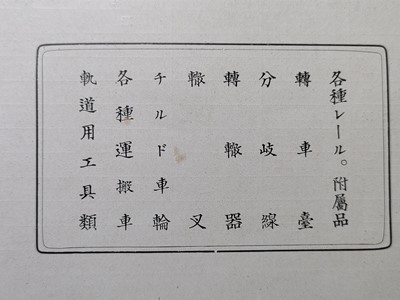 各種レール。附屬品
轉車臺
分岐線
轉轍器
轍叉
チルド車輪
各種運搬車
軌道用工具類